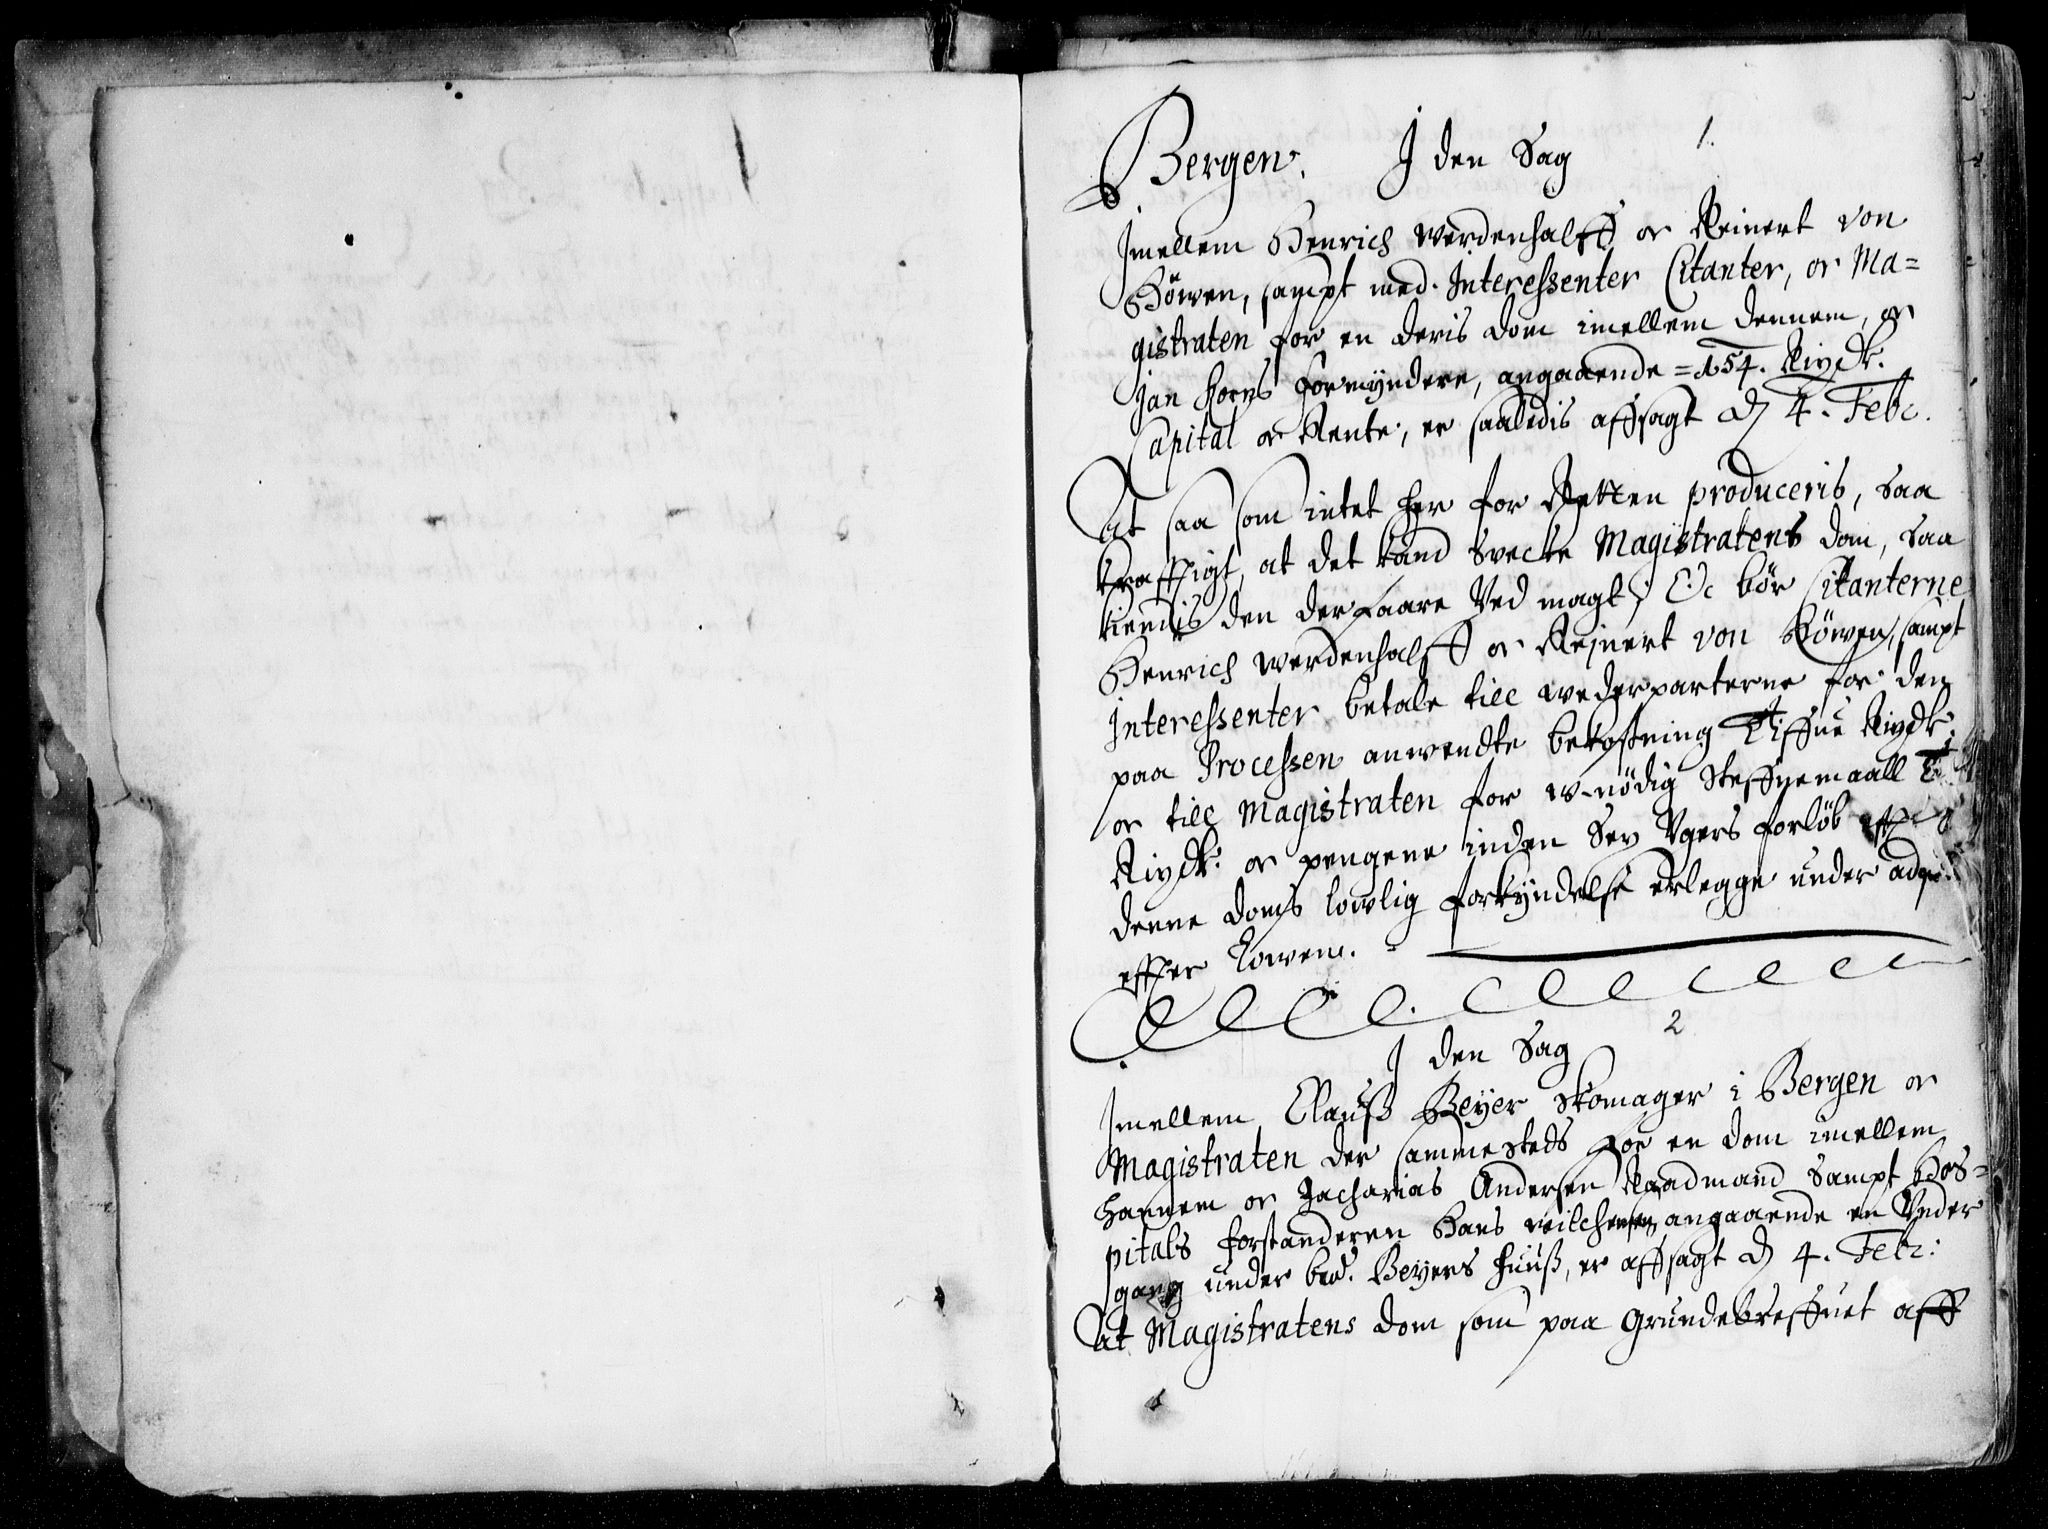 1.
Bergen. J den Sag
Jmellem Henrich Werdenhalff oc Reinert von
Höwen, sampt med Interessenter Citanter, oc Ma=
gistraten for en deris dom imellem dennem, oc
Jan Horns Formyndere, angaaende =154. Rixdr.
Capital oc Rente, er saaledis affsagt d 4. Febr.
At saa som intet her for Retten produceris, saa
krafftigt, at det kand svecke Magistratens dom, saa
kiendis den derfaare Ved magt, Oc bör Citanterne
Henrich Werdenhalff oc Rejnert von Höwen, sampt
Interessenter betale till wederparterne for den
paa Processen anwendte bekostning Tiffue Rixdr.
oc till Magistraten for u-nödig Steffnemaall
Rixdr. oc pengene inden Sex Vgers forlöb efft
denne doms lowlig forkyndelse erlegge under adf
effter Lowen.
2
J den Sag
Jmellem Clauss Beyer Skomager i Bergen oc
Magistraten der sammesteds for en dom imellem
hannem oc Zacharias Andersen Raadmand Sampt Hos=
pitals forstanderen Hans Wilchensen angaaende en Vnder
gang under bem. Beyers huuss, er affsagt d 4. Febr:
At Magistratens dom som paa grundebreffuet aff